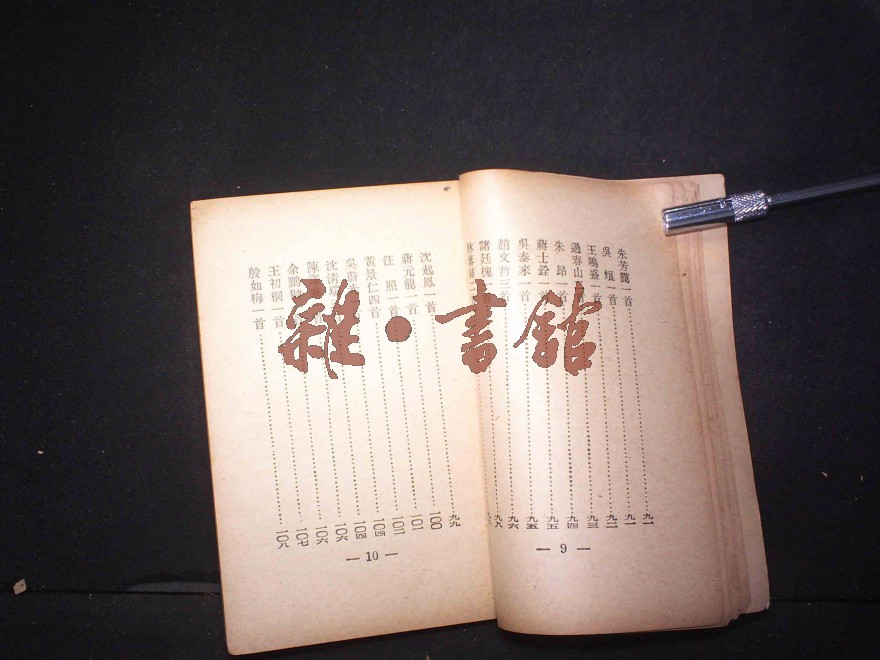 朱芳靄一首……九一
吳烺一首……九一
王鳴盛一首……九二
過春山一首……九三
朱昂一首……九四
蔣士銓一首……九五
吳泰來一首……九五
趙文哲三首……九六
諸廷槐一首……九八
林蕃鍾一
— 9 —
沈起鳳一首……九九
蔣元龍一首……一〇〇
汪照一首……一〇一
黃景仁四首……一〇二
吳蔚……一〇四
沈清瑞……一〇四
陳……一〇六
余鵬……一〇六
王初桐一首……一〇七
殷如梅一首……一〇八
— 10 —
雜·書館